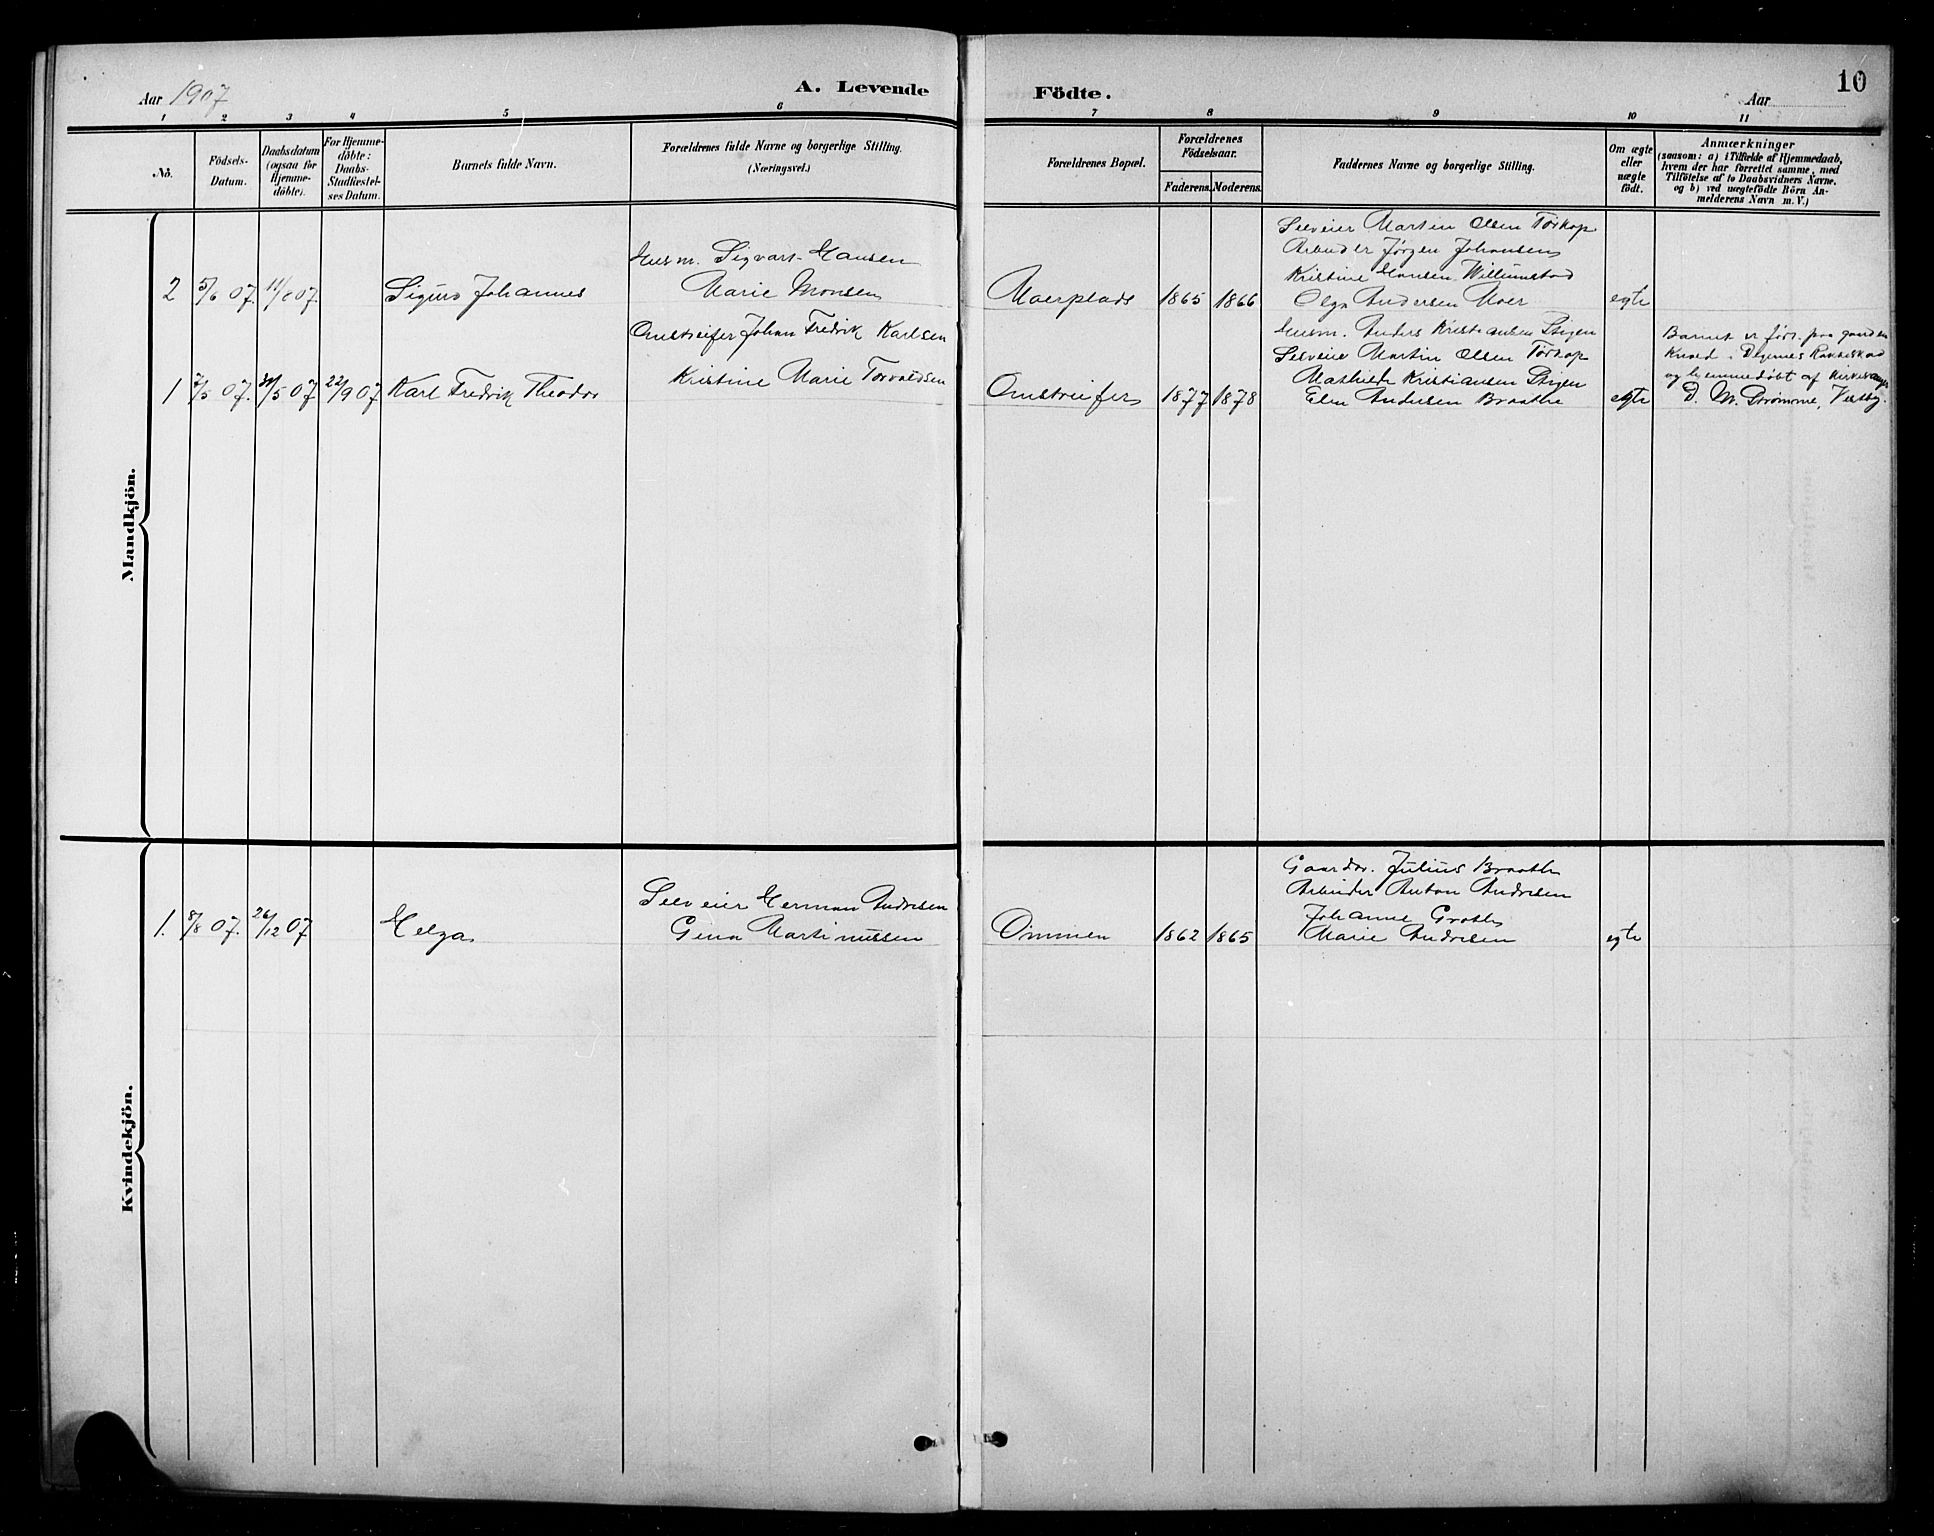 Aar 1907
A. Levende
Födte.
Aar
10
1 2 3 4 5 6 7 8 9 10 11
No.
Födsels-
Datum.
Daabsdatum
(ogsaa for
Hjemme-
döbte).
For Hjemme-
döbte:
Daabs-
Stadfæstel-
ses Datum.
Barnets fulde Navn.
Forældrenes fulde Navne og borgerlige Stilling.
(Næringsvei.)
Forældrenes Bopæl.
Forældrenes
Födselsaar.
Faderens. Moderens.
Faddernes Navne og borgerlige Stilling.
Om ægte
eller
uægte
födt.
Anmærkninger
(saasom: a) i Tilfælde af Hjemmedaab,
hvem der har forrettet samme, med
Tilföielse af to Daabsvidners Navne,
og b) ved uægtefödte Börn An-
melderens Navn m. V.)
Mandkjön.
2 5/6 07. 11/8 07. Sigurd Johannes
Husm. Sigvart Hansen
Marie Monsen
Moerplads 1865 1866
Selveier Martin Olsen Torkop
Arbeider Jørgen Johansen
Kristine Hansen Willumstad
Olga Andersen Moer
egte
1 7/5 07. 31/5 07 22/9 07 Karl Fredrik Theodor
Omstreifer Johan Fredrik Karlsen
Kristine Marie Torvaldsen
Omstreifer 1877 1878
Husm. Anders Kristiansen Stigen
Selveier Martin Olsen Torkop
Mathilde Kristiansen Stigen
Elen Andersen Braathe
egte
Barnet er født paa gaarden
og hjemmedøbt af
D. M. Strømme, Vestby.
Kvindekjön.
1. 8/8 07. 26/12 07 Helga
Selveier Herman Andresen
Gena Martinussen
Ommen 1862 1865
Gaardbr. Julius Braathe
Arbeider Anton Andresen
Johanne
Marie Andresen
egte